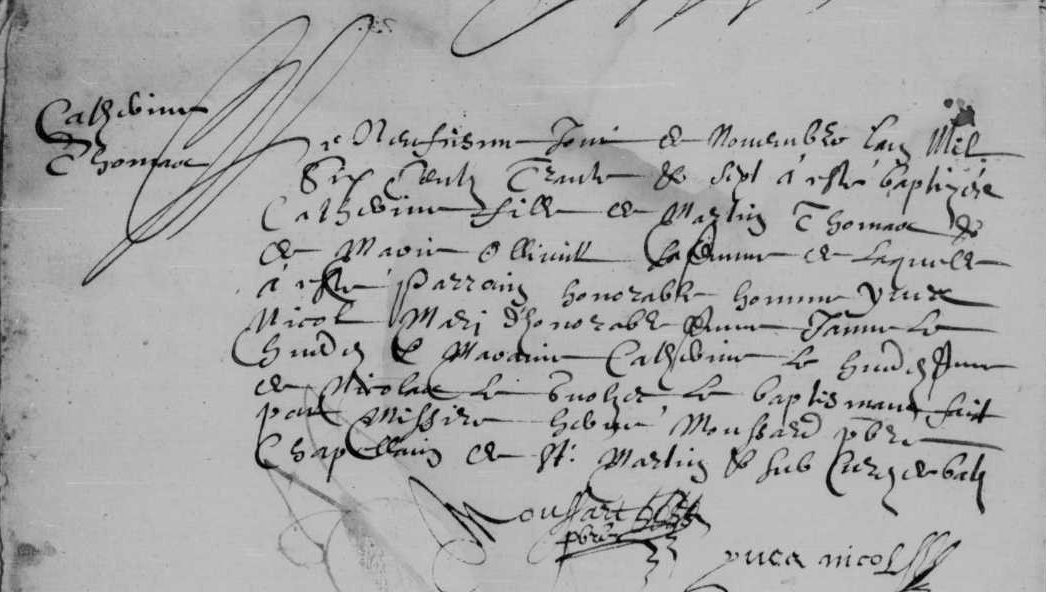 Catherine
Thomas
Le Neufiesme Jour de Novembre Lan Mil
Six Centz Trante & sept a esté baptizée
Catherine fille de Martin Thomas &
de Marie Ollivier sa femme de Laquelle
a esté parrain honorable homme Yves
Nicol Mary d'honorable femme Janne Le
& Maraine Catherine Le femme
de Nicolas Le Le baptismane fait
par Missire hervé Moussard pbre
Chapellain de St. Martin & sub Curé de batz
Moussart
pbre
yves nicol